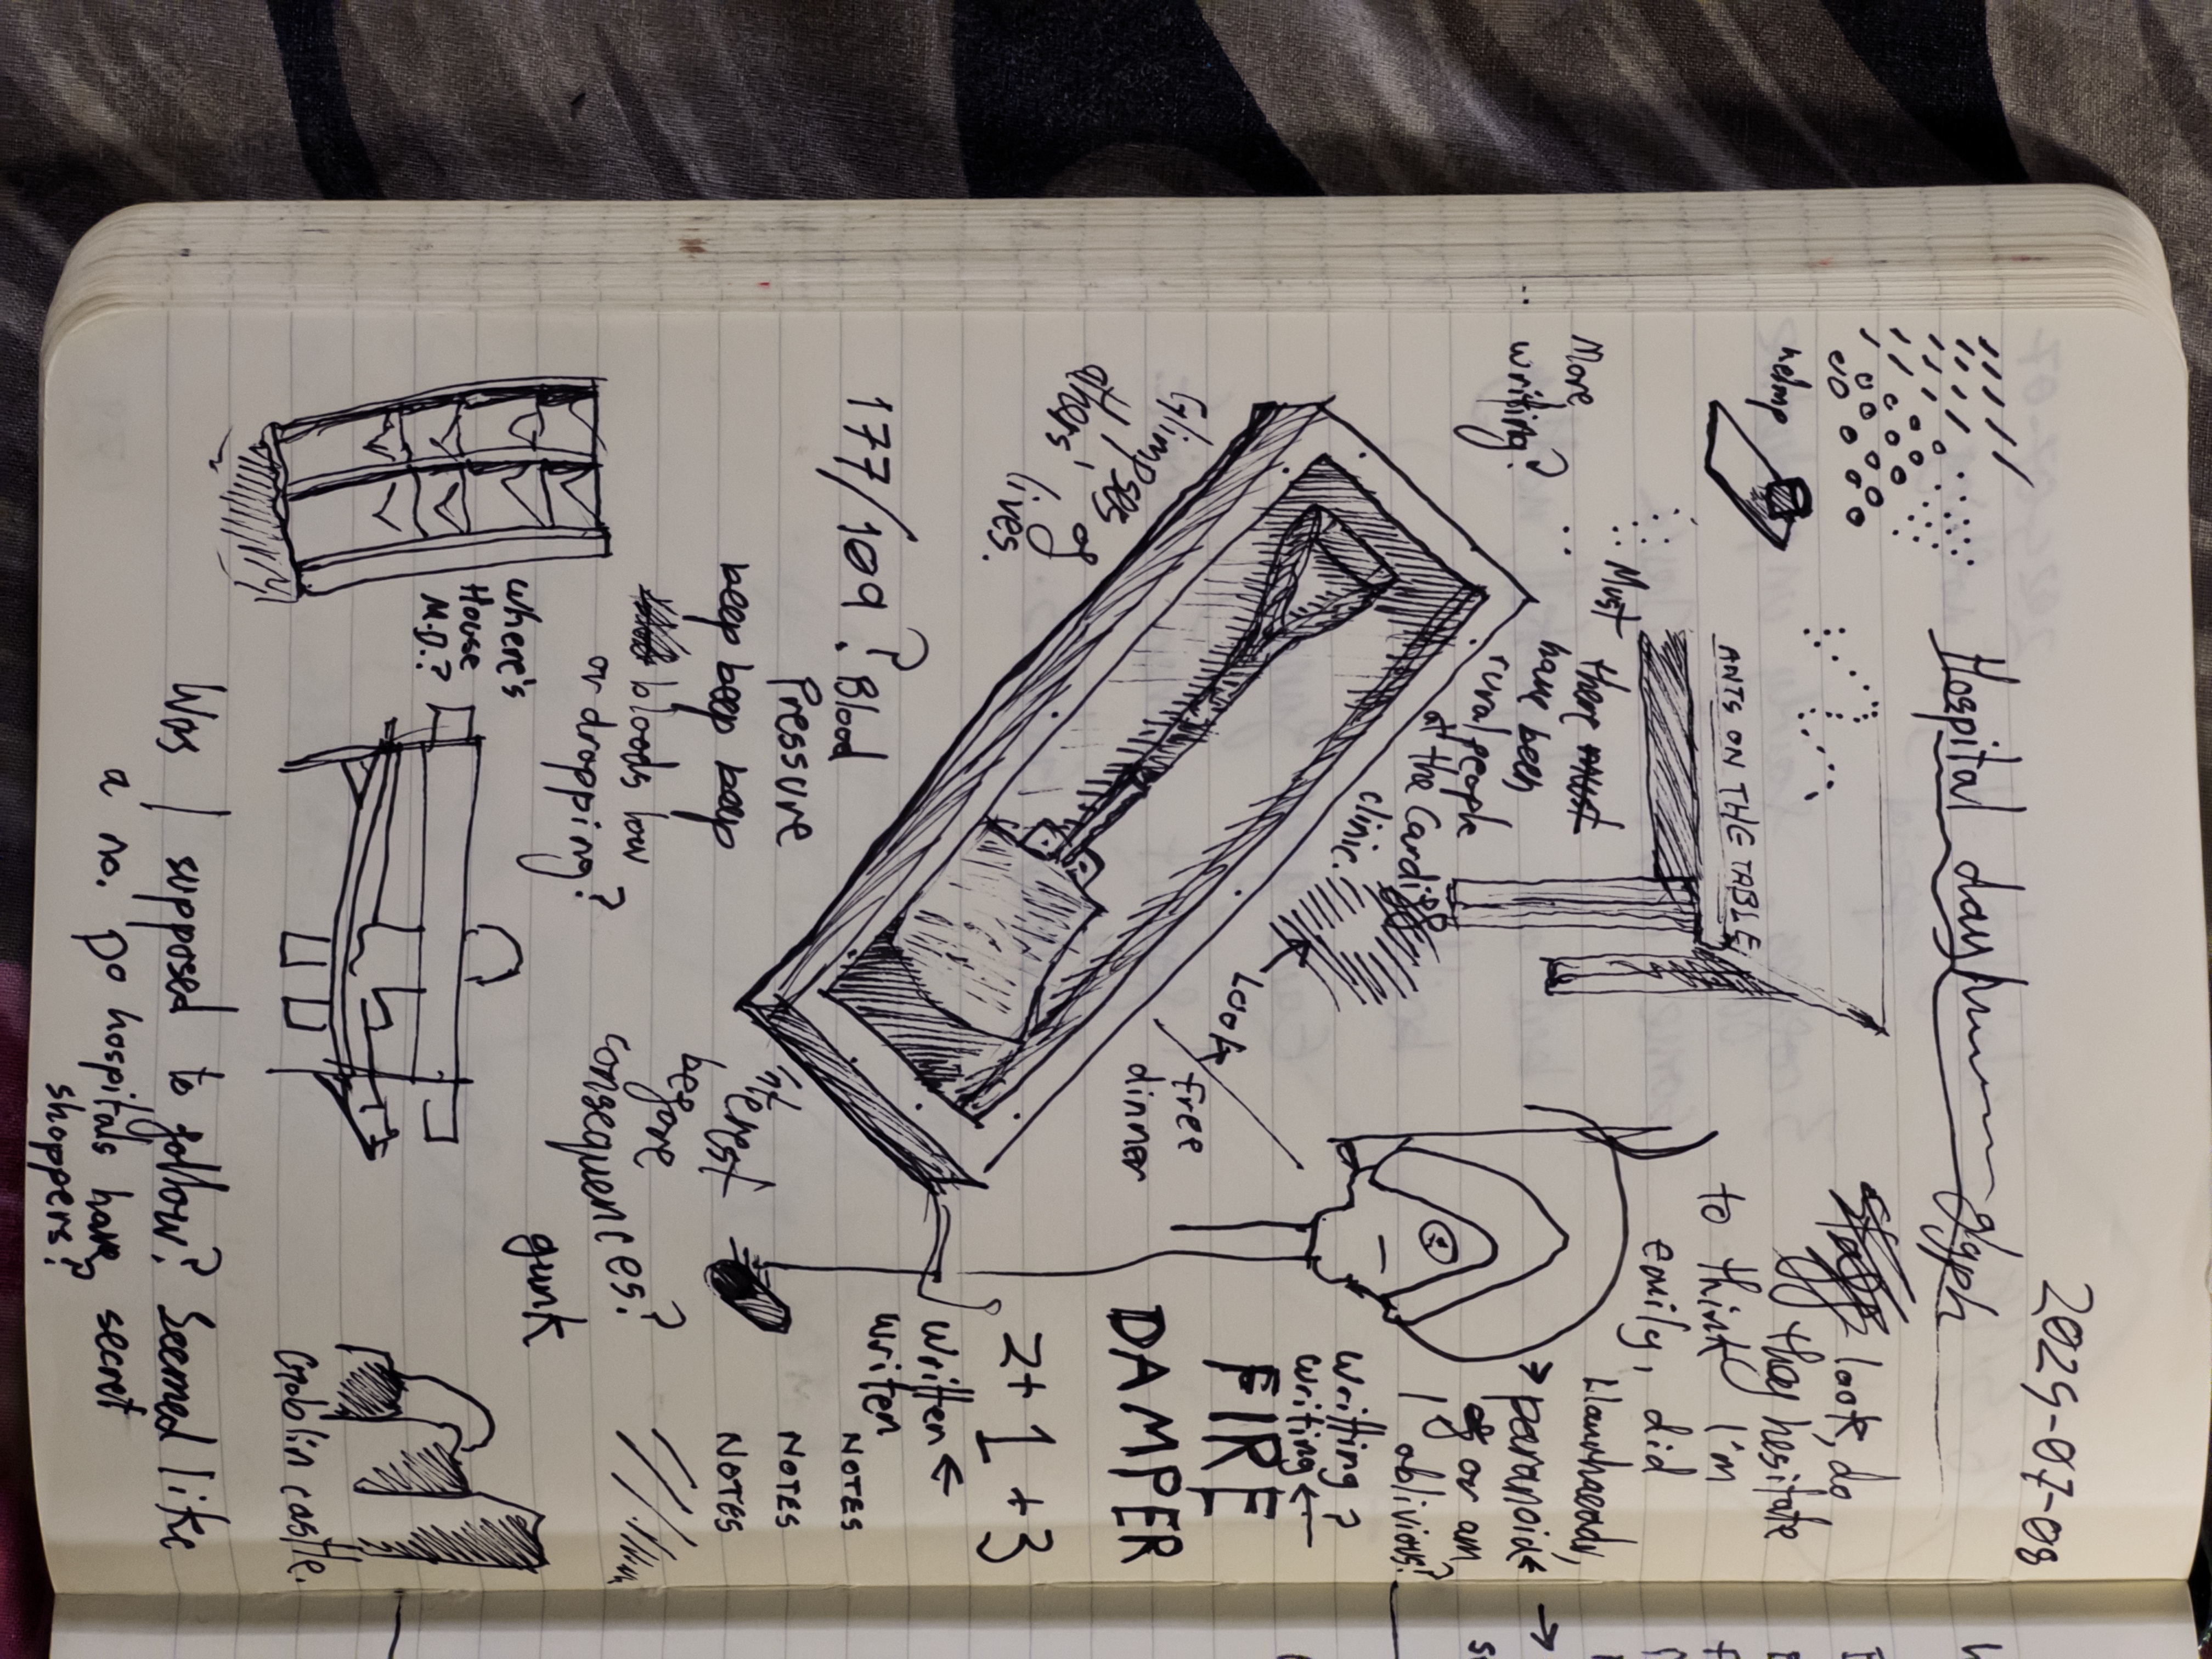 2025-07-08
Hospital dayhum glyph
helmp
ANTS ON THE TABLE
look, do
they hesitate
to think I'm
Emily, did
More
writing?
Must
there
have been
rural people
at the Cardio
clinic.
LOOK
free
dinner
paranoid
or am
I oblivious?
writting?
writing ←
FIRE
DAMPER
2+ 1 +3
written ←
writen
NOTES
NOTES
NOTES
Glimpses
of
others'
lives.
177/109? Blood
Pressure
beep beep beep
bloods now
or dropping?
interest
begore
consequences?
gunk
Where's
House
M.D.?
Goblin castle.
Was I supposed to follow? Seemed like
a no. Do hospitals have secret
shoppers?